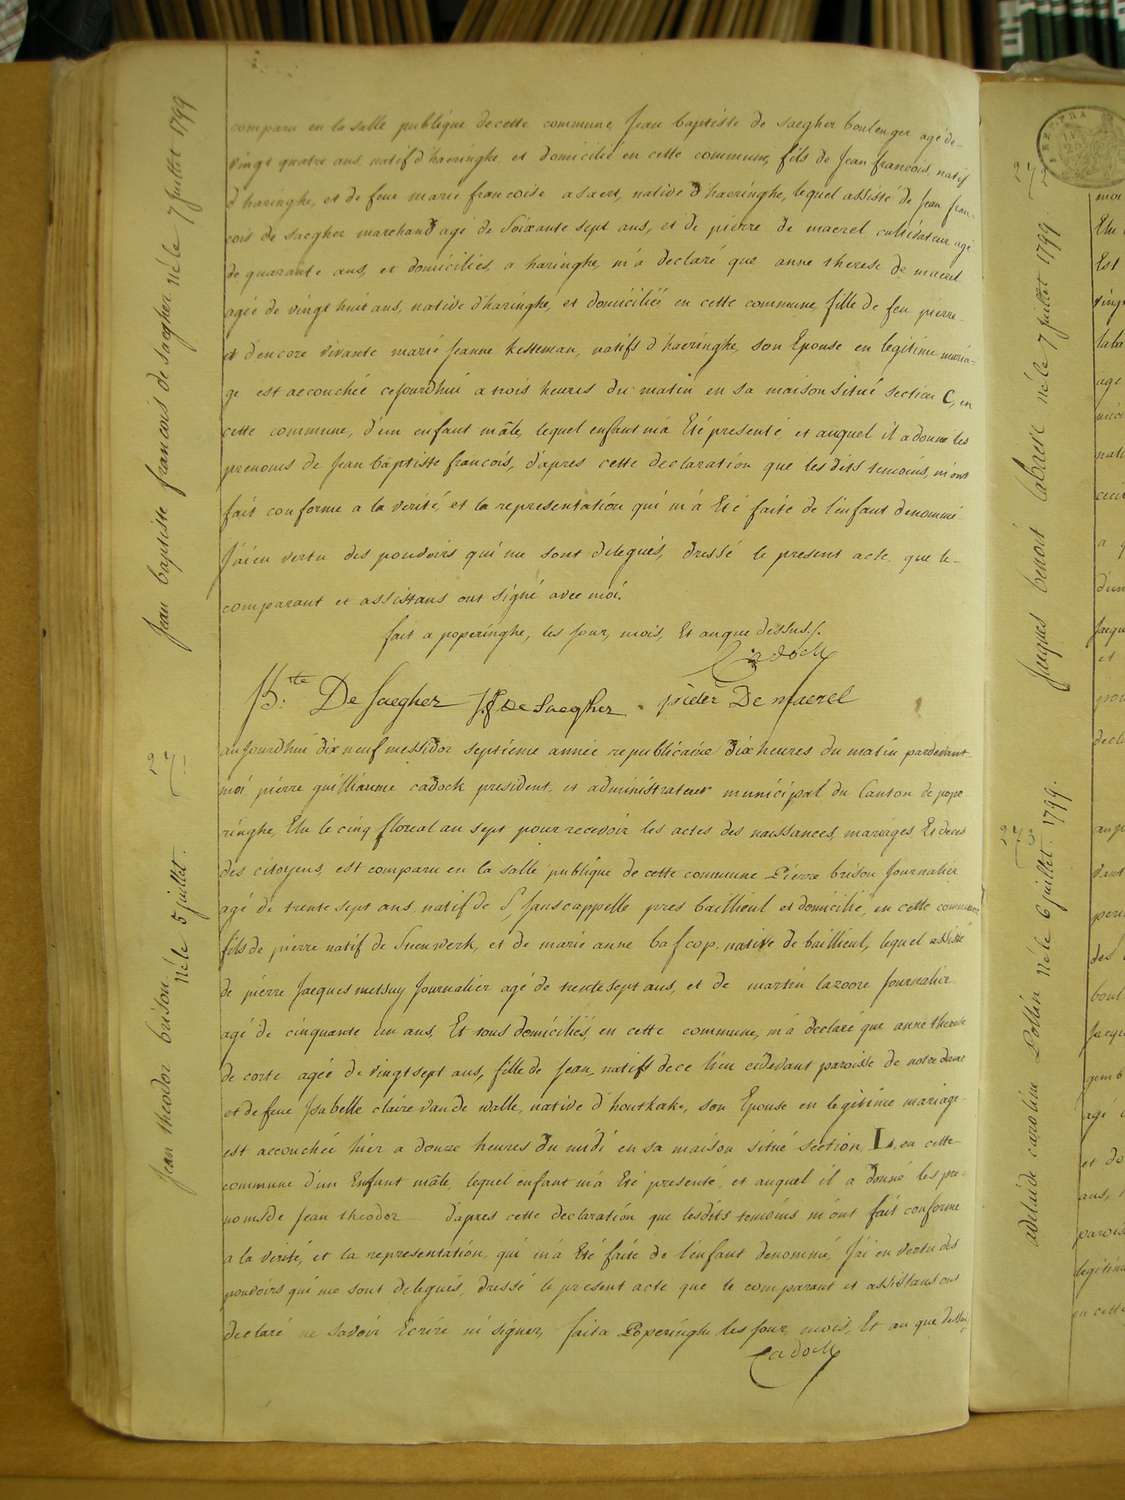 comparu en la salle publique de cette commune Jean baptiste de saegher boulenger agé de
vingt quatre ans natif d'haeringhe, et domicilié en cette commune, fils de Jean francois natif
d'haringhe, et de feue marie francoise asaert, native d'haeringhe, lequel assisté de Jean fran-
cois de saegher marchand agé de Soixante sept ans, et de pierre de maerel cultivateur agé
de quarante ans, et domiciliés a haringhe, m'a declaré que anne therese de maerel
agée de vingt huit ans, native d'haringhe, et domiciliée en cette commune, fille de feu pierre
et d'encore vivante marie Jeanne Kesteman, natifs d'haeringhe, son Epouse en legitime maria-
ge est accouchée cejourdhui a trois heures du matin en sa maison situé section C, en
cette commune, d'un enfant mâle, lequel enfant m'a Eté presenté et auquel il a donné les
prenoms de Jean baptiste francois, d'apres cette declaration que les dits temoins, m'ont
fait conforme a la verité, et la representation qui m'a Eté faite de l'enfant denommé
J'ai en vertu des pouvoirs qui me sont delegués, dressé le present acte que le
comparant et assistans ont signé avec moi.
fait a poperinghe, les jour, mois, Et an que dessus./.
Cadock
JB:te De Saegher J.f De Saegher pieter De maerel
aujourdhui dix neuf messidor septieme année republicaine dix heures du matin pardevant
moi pierre guilliaume cadock president et administrateur municipal du Canton de pope
ringhe, Elu le cinq floreal an sept pour recevoir les actes des naissances, mariages Et deces
des citoyens, est comparu en la salle publique de cette commune Pierre brison Journalier
agé de trente sept ans, natif de St Janscappelle pres baillieul et domicilié, en cette commune
fils de pierre natif de Steenwerk, et de marie anne bafcop native de baillieul, lequel assisté
de pierre Jacques messuy Journalier agé de trente sept ans, et de martin lazoore Journalier
agé de cinquante un ans, Et tous domiciliés, en cette commune, m'a declaré que anne therese
de corte agée de vingt sept ans, fille de Jean natifs de ce lieu cidevant paroisse de notre dame
et de feue Isabelle claire vande walle, native d'houtkake, son Epouse en legitime mariage
est accouchée hier a douze heures du midi en sa maison situé section L, en cette
commune d'un Enfant mâle, lequel enfant m'a Eté presenté, et auquel il a donné les pre-
noms de Jean theodor d'apres cette declaration que lesdits temoins m'ont fait conforme
a la verité, et la representation qui m'a Eté faite de l'enfant denommé, J'ai en vertu des
pouvoirs qui me sont delegués, dressé le present acte que le comparant et assistans ont
declaré ne savoir Ecrire ni signer, fait a Poperinghe les jour, mois, Et an que dessus,
Cadock
Jean baptiste francois de saegher né le 7 Juillet 1799
271
Jean theodor brison
né le 5 juillet.
272
Jaques benoit labaere né le 7 juillet 1799
273
adelaide carolin Pollin né le 6 juillet. 1799.